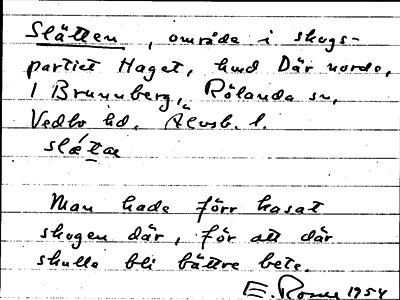 Slätten, område i skogs-
partiet Haget, hmd Där nordo,
1 Brunnberg, Rölanda sn,
Vedbo hd, Älvsb. l.
slǽtæ
Man hade förr hasat
skogen där, för att där
skulle bli bättre bete.
E. 1954